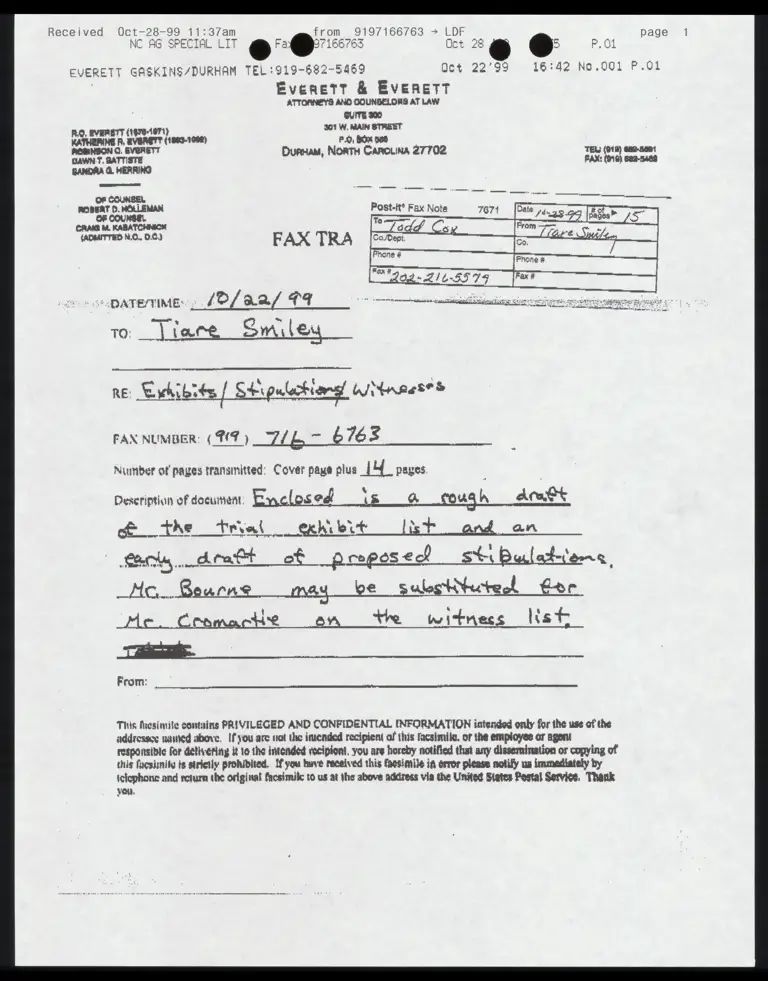 Received Oct-28-99 11:37am from 9197166763 → LDF page 1
NC AG SPECIAL LIT 97166763 Oct 28 P.01
EVERETT GASKINS/DURHAM TEL:919-682-5469 Oct 22'99 16:42 No.001 P.01
EVERETT & EVERETT
ATTORNEYS AND COUNSELORS AT LAW
SUITE 300
301 W. MAIN STREET
P.O. BOX 586
DURHAM, NORTH CAROLINA 27702
R.O. EVERETT (1878-1971)
KATHERINE R. EVERETT (1893-1992)
ROBINSON O. EVERETT
DAWN T. BATTISTE
SANDRA G. HERRING
TEL: (919) 682-5691
FAX: (919) 682-5469
OF COUNSEL
ROBERT D. HOLLEMAN
OF COUNSEL
CRAIG M. KABATCHNICK
(ADMITTED N.C., D.C.)
FAX TRA
Post-it® Fax Note 7671
Date 10-28-99 # of pages ▶ 15
To Todd Cox
From Tiare Smiley
Co./Dept.
Co.
Phone #
Phone #
Fax # 202-216-5579
Fax #
DATE/TIME: 10/22/99
TO: Tiare Smiley
RE: Exhibits/Stipulations/Witnesses
FAX NUMBER: (919) 716-6763
Number of pages transmitted: Cover page plus 14 pages.
Description of document: Enclosed is a rough draft
of the trial exhibit list and an
early draft of proposed stipulations.
Mr. Bourne may be substituted for
Mr. Cromartie on the witness list.
From:
This facsimile contains PRIVILEGED AND CONFIDENTIAL INFORMATION intended only for the use of the
addressee named above. If you are not the intended recipient of this facsimile, or the employee or agent
responsible for delivering it to the intended recipient, you are hereby notified that any dissemination or copying of
this facsimile is strictly prohibited. If you have received this facsimile in error please notify us immediately by
telephone and return the original facsimile to us at the above address via the United States Postal Service. Thank
you.